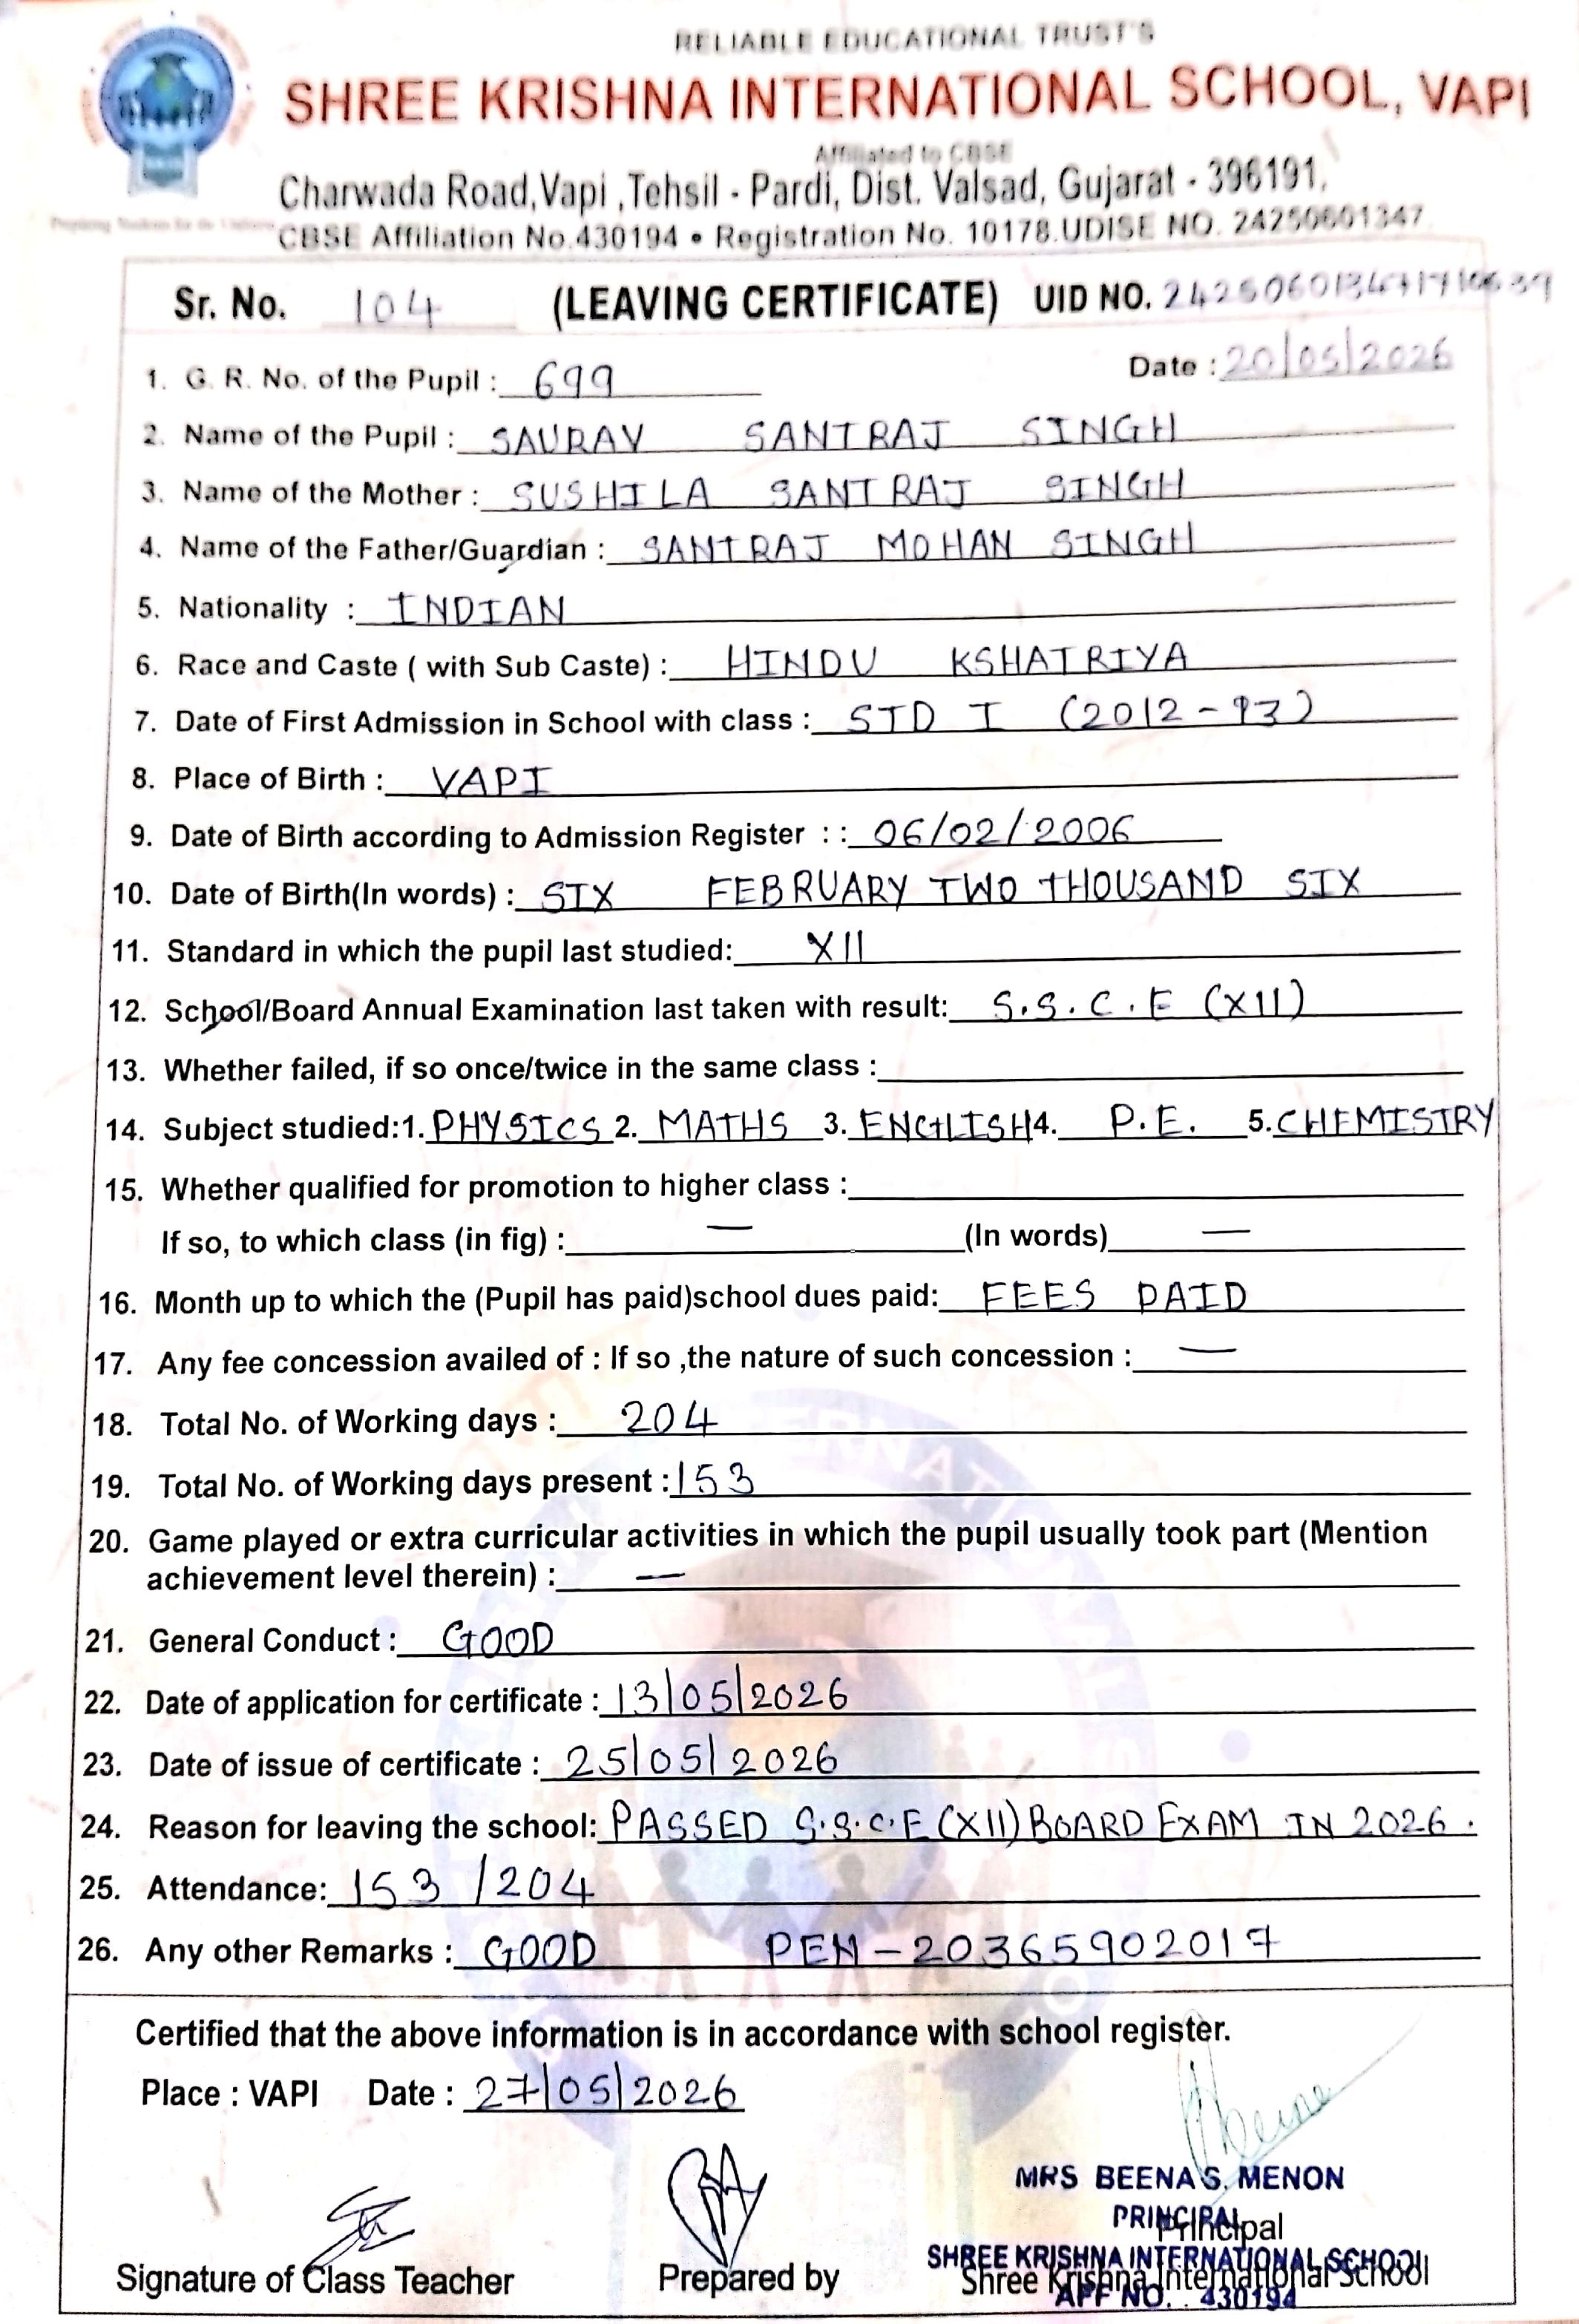 RELIABLE EDUCATIONAL TRUST'S
SHREE KRISHNA INTERNATIONAL SCHOOL, VAPI
Affiliated to CBSE
Charwada Road,Vapi ,Tehsil - Pardi, Dist. Valsad, Gujarat - 396191.
CBSE Affiliation No.430194 • Registration No. 10178.UDISE NO. 24250601347
Sr. No. 104 (LEAVING CERTIFICATE) UID NO.
Date : 20/05/2026
1. G. R. No. of the Pupil : 699
2. Name of the Pupil : SAURAV SANTRAJ SINGH
3. Name of the Mother : SUSHILA SANTRAJ SINGH
4. Name of the Father/Guardian : SANTRAJ MOHAN SINGH
5. Nationality : INDIAN
6. Race and Caste ( with Sub Caste) : HINDU KSHATRIYA
7. Date of First Admission in School with class : STD I (2012-13)
8. Place of Birth : VAPI
9. Date of Birth according to Admission Register : : 06/02/2006
10. Date of Birth(In words) : SIX FEBRUARY TWO THOUSAND SIX
11. Standard in which the pupil last studied: XII
12. School/Board Annual Examination last taken with result: S.S.C.E (XII)
13. Whether failed, if so once/twice in the same class :
14. Subject studied:1. PHYSICS 2. MATHS 3. ENGLISH 4. P.E. 5. CHEMISTRY
15. Whether qualified for promotion to higher class :
If so, to which class (in fig) : — (In words) —
16. Month up to which the (Pupil has paid)school dues paid: FEES PAID
17. Any fee concession availed of : If so ,the nature of such concession : —
18. Total No. of Working days : 204
19. Total No. of Working days present : 153
20. Game played or extra curricular activities in which the pupil usually took part (Mention
achievement level therein) : —
21. General Conduct : GOOD
22. Date of application for certificate : 13/05/2026
23. Date of issue of certificate : 25/05/2026
24. Reason for leaving the school: PASSED S.S.C.E (XII) BOARD EXAM IN 2026.
25. Attendance: 153 /204
26. Any other Remarks : GOOD PEN-20365902017
Certified that the above information is in accordance with school register.
Place : VAPI Date : 27/05/2026
MRS BEENA S. MENON
PRINCIPAL
Principal
SHREE KRISHNA INTERNATIONAL SCHOOL
Signature of Class Teacher Prepared by Shree Krishna International School
AFF NO. . 430194